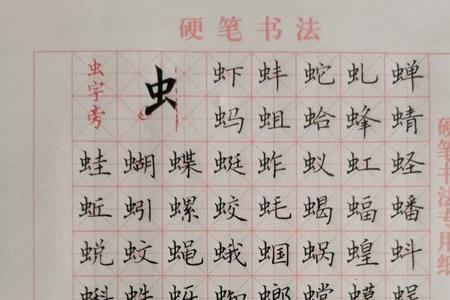 硬笔书法
虫字旁
虫
虾蚌蛇虬蝉
蚂蛆蛤蜂蜻
蛙蝴蝶蜓蚱蚁虹蛏
蚯蚓螺蛟蚝蝎蝠蟠
蜕蚊蝇蛾蝈蜗蝗蚪
蝌螂螳蟆蜈
硬笔书法专用纸